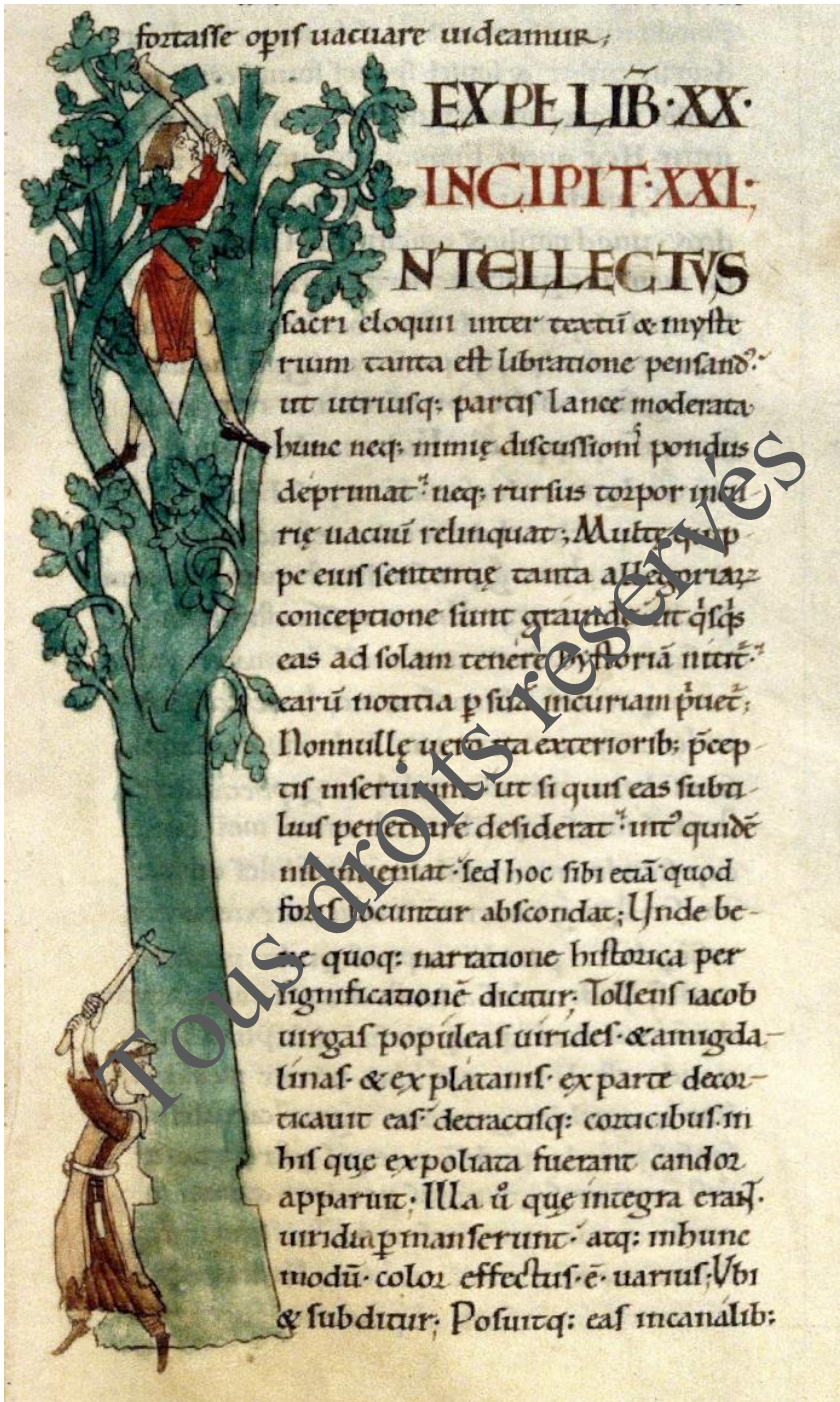 fortasse opis uacuare uideamur;
EXPL LIB̃·XX·
INCIPIT·XXI;
NTELLECTVS
sacri eloquii inter textū & myste
rium tanta est libratione pensand᷒·
ut utriusq; partis lance moderata
hunc neq; nimię discussionis pondus
deprimat· neq; rursus torpor incu
rię uacuū relinquat; Multe quip
pe eius sententię tanta allegoriaꝝ
conceptione sunt grauide ut q̇sq̇s
eas ad solam tenere hystoriā nitit᷑·
earū notitia p suā incuriam ṗuet᷑;
Nonnullę uero ita exteriorib; p̄cep
tis inseruiunt· ut si quis eas subti
lius penetrare desiderat· int᷒ quidē
nil inueniat· sed hoc sibi etiā quod
foris locuntur abscondat; Unde be-
ne quoq; narratione historica per
significationē dicitur; Tollens iacob
uirgas populeas uirides· & amigda-
linas· & ex platanis· ex parte decor-
ticauit eas· detractisq; corticibus· in
his que expoliata fuerant candor
apparuit· Illa ů que integra erant·
uiridia pmanserunt· atq; in hunc
modū· color effectus·ē· uarius; Vbi
& subditur; Posuitq; eas in canalib;
Tous droits réservés